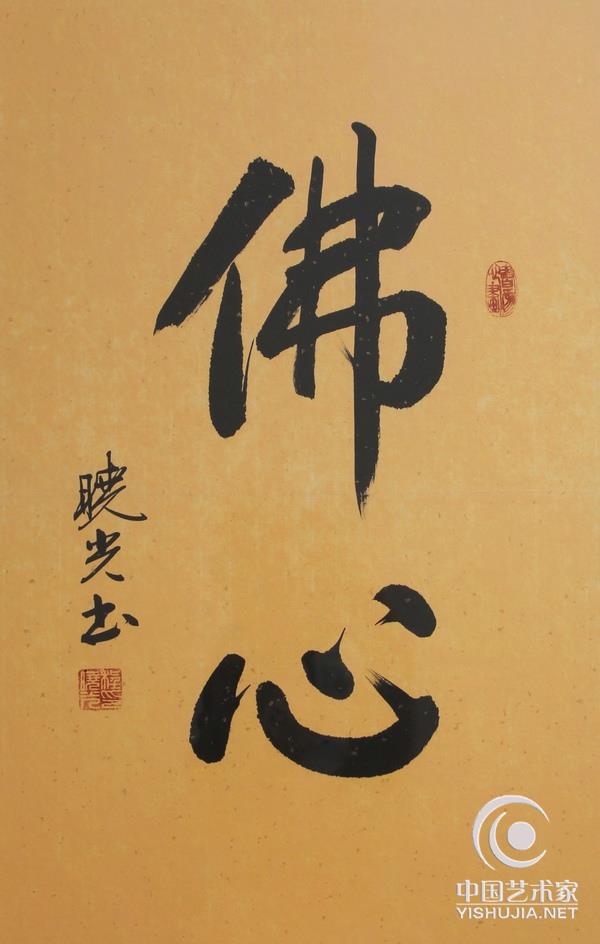 佛心
曉光书
中国艺术家
YISHUJIA.NET